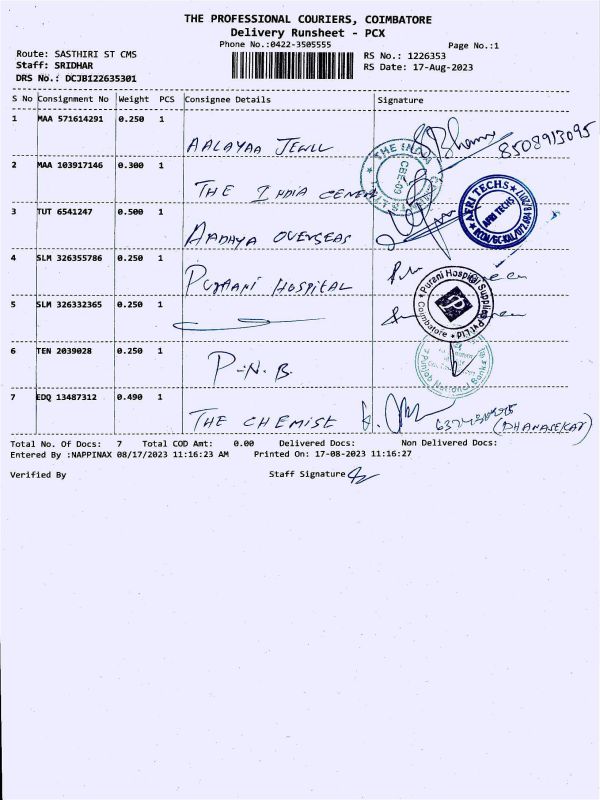 THE PROFESSIONAL COURIERS, COIMBATORE
Delivery Runsheet - PCX
Phone No.:0422-3505555
Page No.:1
Route: SASTHIRI ST CMS
RS No.: 1226353
Staff: SRIDHAR
RS Date: 17-Aug-2023
DRS No.: DCJB122635301
S No Consignment No Weight PCS Consignee Details Signature
1 MAA 571614291 0.250 1
AALAYAA JEWLL 8508913095
2 MAA 103917146 0.300 1
THE INDIA CEMEN
THE INDIA CEMENTS LTD
CBE-09
3 TUT 6541247 0.500 1
AADHYA OVERSEAS
AFRI TECHS
AFRI TECHS
4 SLM 326355786 0.250 1
PURAANI HOSPITAL
Purani Hospital Supplies PVT.LTD
Coimbatore
5 SLM 326332365 0.250 1
6 TEN 2039028 0.250 1
P.N.B.
Punjab National Bank
7 EDQ 13487312 0.490 1
THE CHEMIST
(DHANASEKAR)
Total No. Of Docs: 7 Total COD Amt: 0.00 Delivered Docs: Non Delivered Docs:
Entered By :NAPPINAX 08/17/2023 11:16:23 AM Printed On: 17-08-2023 11:16:27
Verified By Staff Signature